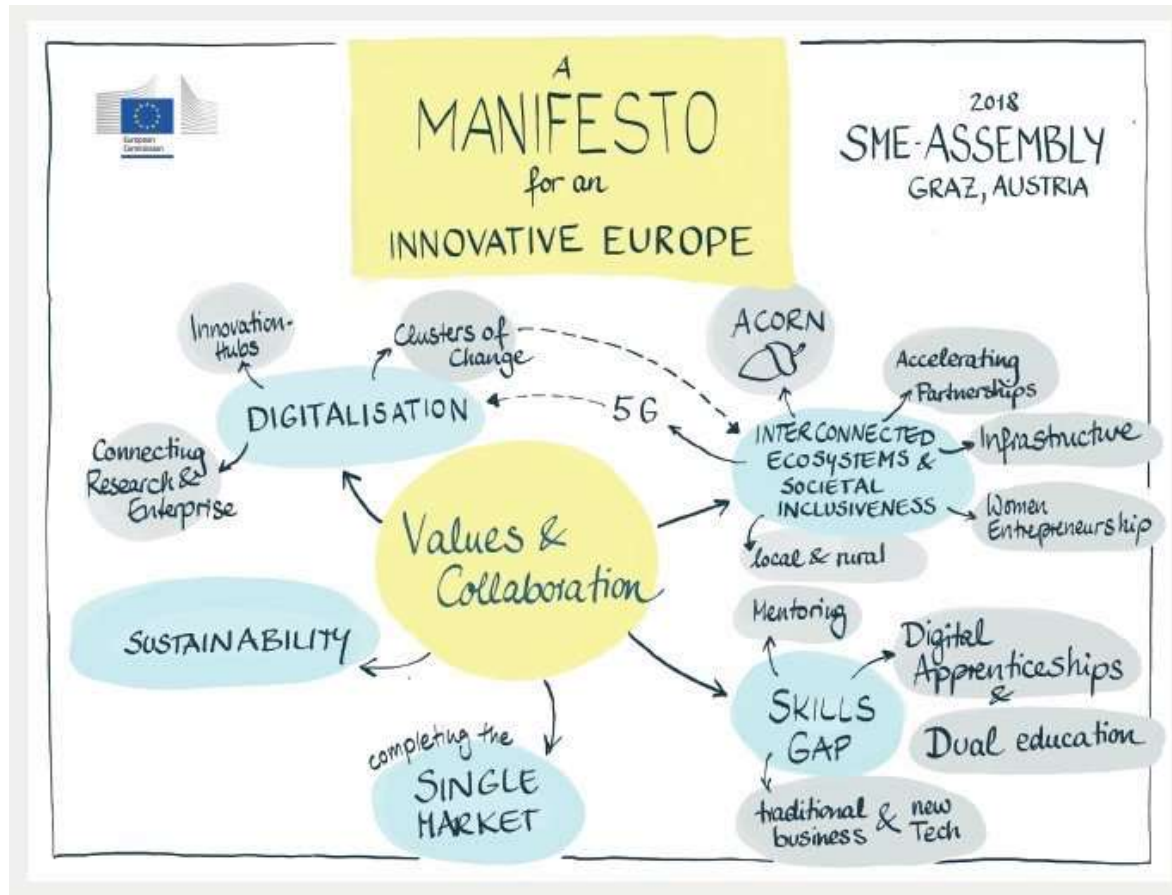 European
Commission
A
MANIFESTO
for an
INNOVATIVE EUROPE
2018
SME-ASSEMBLY
GRAZ, AUSTRIA
Innovation-
Hubs
Clusters of
Change
DIGITALISATION
Connecting
Research &
Enterprise
5G
ACORN
Accelerating
Partnerships
INTERCONNECTED
ECOSYSTEMS &
SOCIETAL
INCLUSIVENESS
Infrastructure
Women
Entrepreneurship
local & rural
Values &
Collaboration
SUSTAINABILITY
completing the
SINGLE
MARKET
Mentoring
SKILLS
GAP
Digital
Apprenticeships
&
Dual education
traditional & new
business Tech